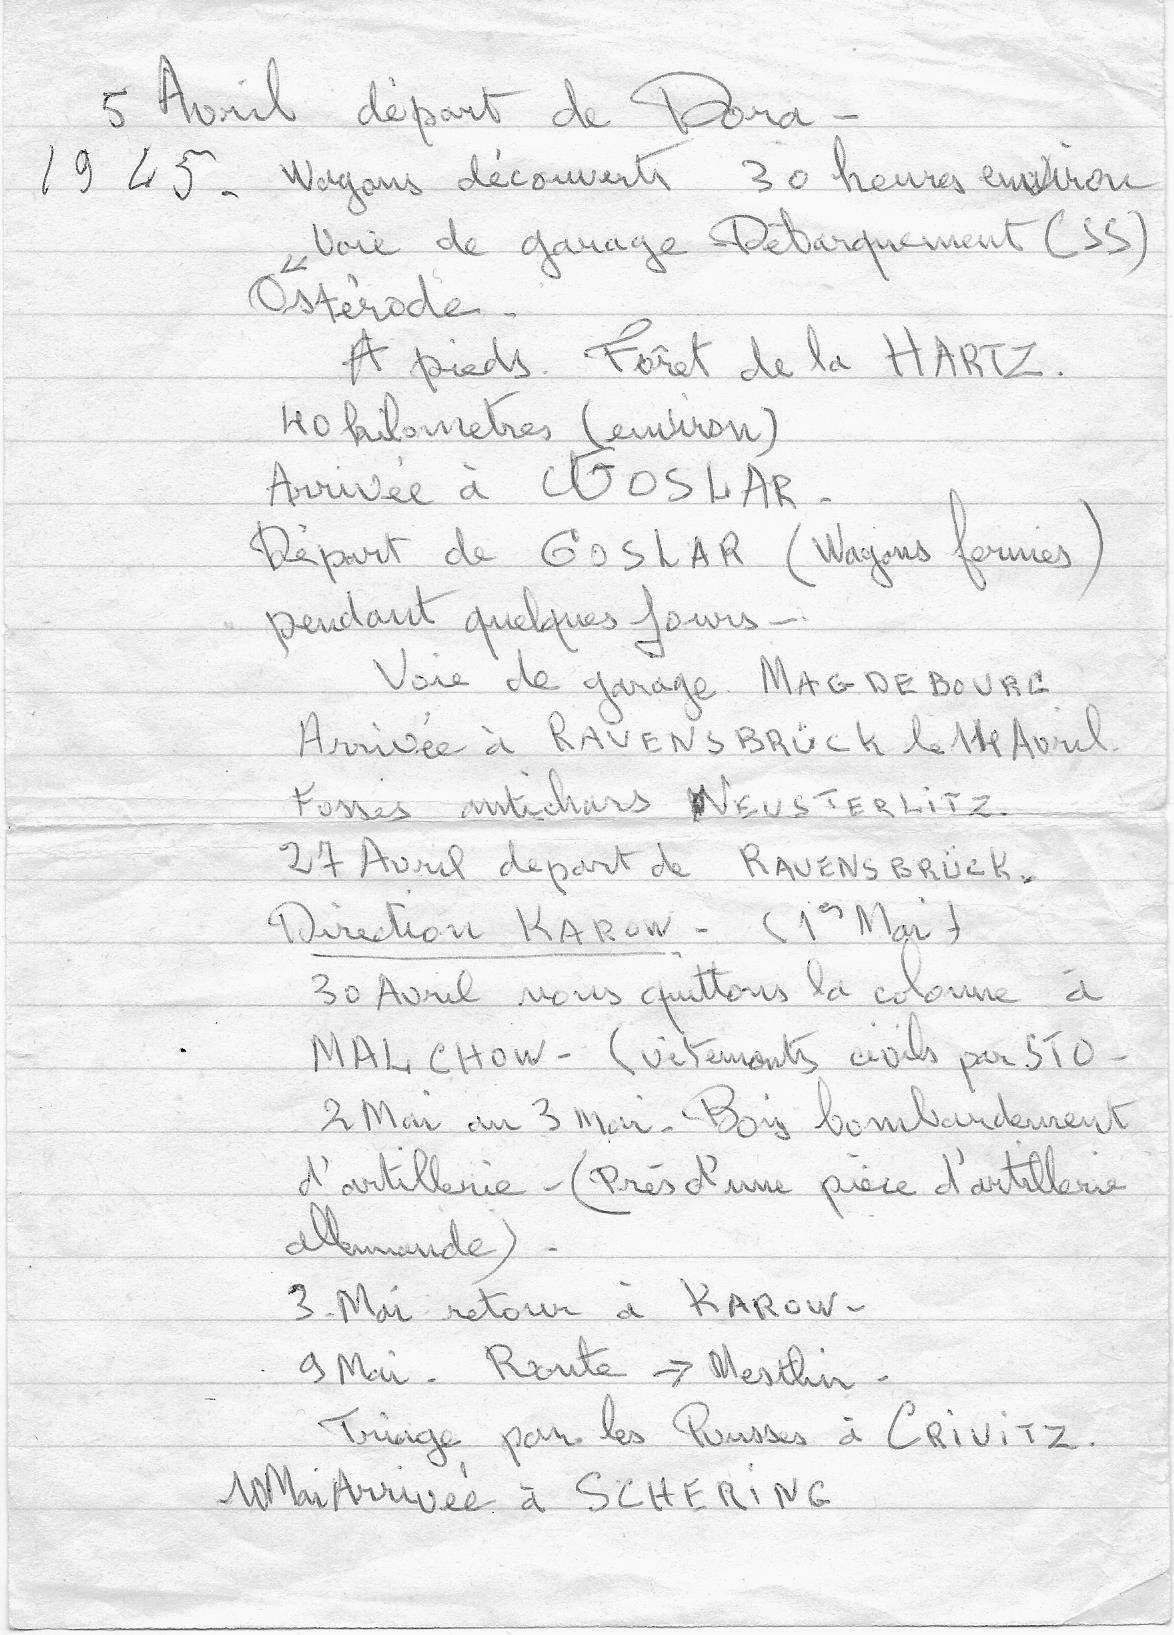 5 Avril départ de Dora -
1945. Wagons découverts 30 heures environ
Voie de garage Débarquement (SS)
Ostérode.
A pieds. Forêt de la HARTZ.
40 kilometres (environ)
Arrivée à GOSLAR.
Départ de GOSLAR (Wagons fermés)
pendant quelques jours -
Voie de garage MAGDEBOURG
Arrivée à RAVENSBRÜCK le 14 Avril.
Fossés antichars NEUSTERLITZ.
27 Avril depart de RAVENSBRÜCK.
Direction KAROW - (1er Mai)
30 Avril nous quittons la colonne à
MALCHOW - (vêtements civils par STO -
2 Mai au 3 Mai. Bois bombardement
d'artillerie - (Près d'une pièce d'artillerie
allemande).
3 Mai retour à KAROW -
9 Mai. Route → Mesthin -
Triage par les Russes à CRIVITZ.
10 Mai Arrivée à SCHERING